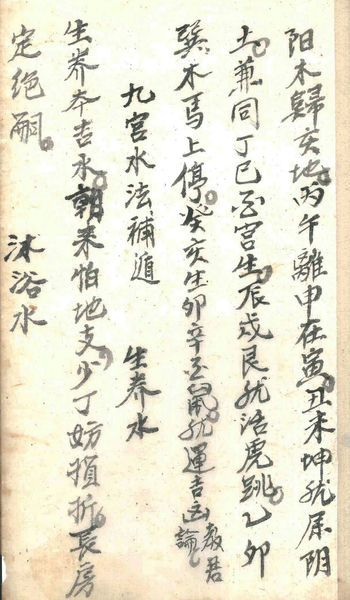 阳木歸亥地丙午離申在寅丑未坤就屬阴
土兼同丁巳宫生辰戌艮就浩虎跳乙卯
巽木馬上停癸亥生卯辛就運吉凶教君論
九宫水法補遁
生养水
生养本吉水朝来怕地支少丁妨損折長房
定绝嗣
沐浴水